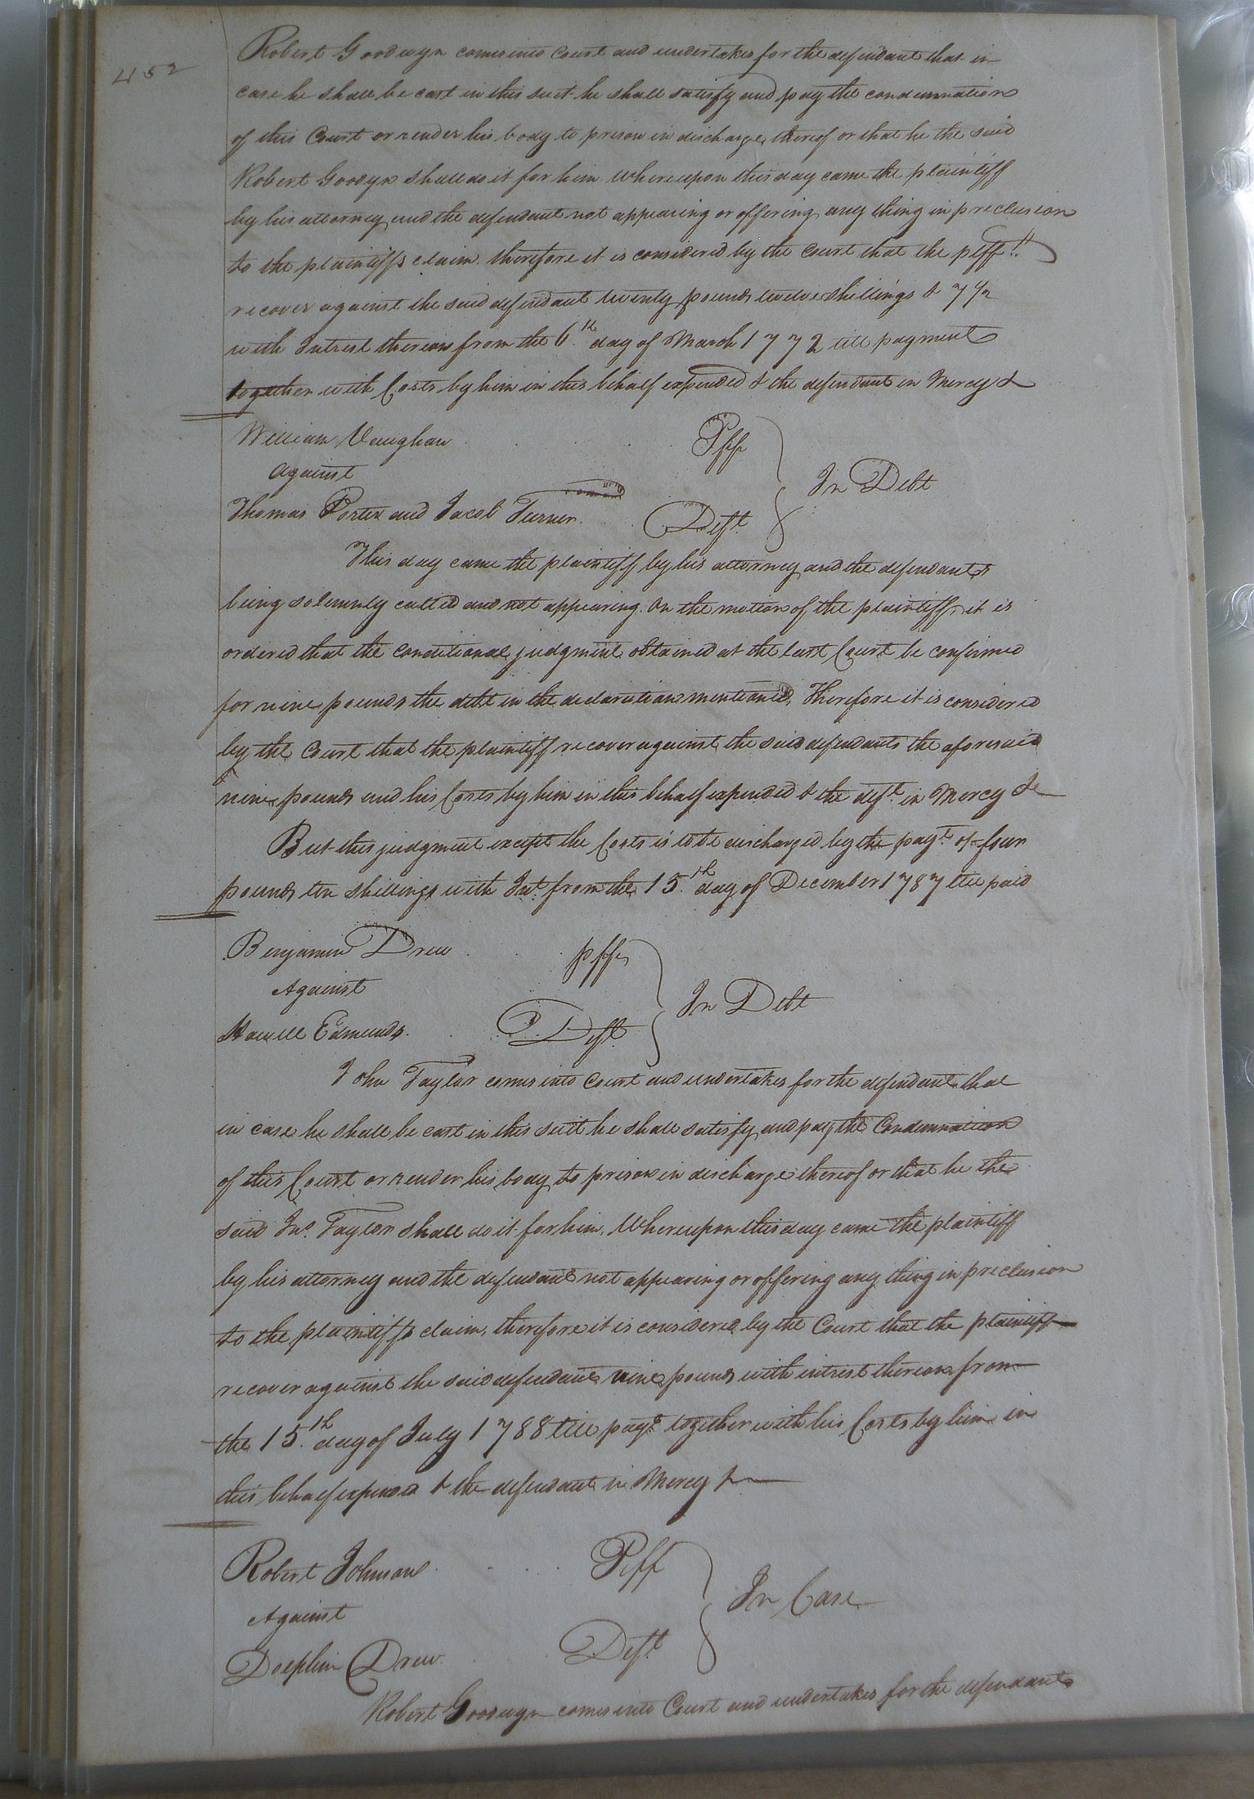 452
Robert Goodwyn comes into Court and undertakes for the defendant that in
case he shall be cast in this suit he shall satisfy and pay the condemnation
of this Court or render his body to prison in discharge thereof or that he the said
Robert Goodyn shall do it for him whereupon this day came the plaintiff
by his attorney and the defendant not appearing or offering any thing in preclusion
to the plaintiffs claim. therefore it is considered by the court that the plff
recover against the said defendant twenty pounds twelve shillings &
with Intrest thereon from the 6.th day of March 1772 till payment
together with Costs by him in this behalf expended & the defendant in Mercy &
William Vaughan Plff
against
In Debt
Thomas Porter and Jacob Turner. Deft
This day came the plaintiff by his attorney and the defendants
being solemnly called and not appearing. On the motion of the plaintiff, it is
ordered that the conditional judgment obtained at the last Court be confirmed
for nine pounds the debt in the declaration mentioned, Therefore it is considered
by the Court that the plaintiff recover against the said defendants the aforesaid
nine pounds and his Costs by him in this behalf expended & the deft. in Mercy &c
But this judgment except the Costs is to be discharged by the payt. of four
pounds ten shillings with Int. from the 15.th day of December 1787 till paid
Benjamin Drew plff
Against
In Debt
Howell Edmunds. Deft
John Taylor comes into Court and undertakes for the defendant that
in case he shall be cast in this suit he shall satisfy and pay the Condemnation
of this Court or render his body to prison in discharge thereof or that he the
said Jno. Taylor shall do it for him. Whereupon this day came the plaintiff
by his attorney and the defendant not appearing or offering any thing in preclusion
to the plaintiffs claim, therefore it is considered by the Court that the plaintiff
recover against the said defendant nine pounds with intrest thereon from
the 15.th day of July 1788 till payt. together with his Costs by him in
this behalf expended & the defendant in Mercy &
Robert Johnson Plff
Against
In Case
Dolphin Drew. Deft
Robert Goodwyn comes into Court and undertakes for the defendant